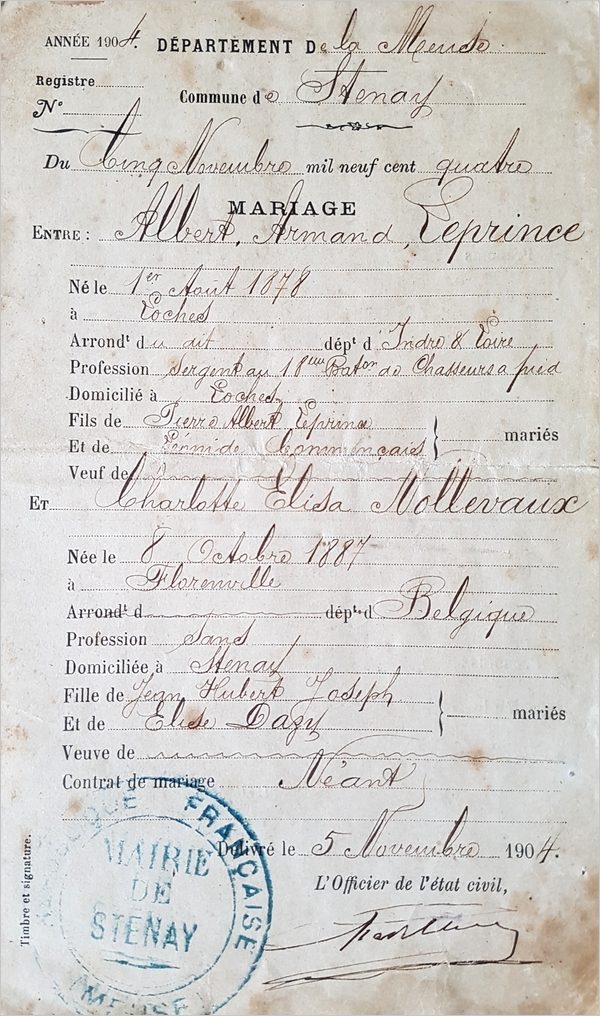 ANNÉE 1904. DÉPARTEMENT De la Meuse.
Registre
N° Commune de Stenay
Du Cinq Novembre mil neuf cent quatre
MARIAGE
ENTRE : Albert, Armand, Leprince
Né le 1er Août 1878
à Loches
Arrondt du dit dépt d Indre & Loire
Profession Sergent au 18eme Baton de Chasseurs a pied
Domicilié à Loches
Fils de Pierre Albert Leprince
Et de Commençais mariés
Veuf de
ET Charlotte Elisa Nollevaux
Née le 8 Octobre 1887
à Florenville
Arrondt d dépt d Belgique
Profession Sans
Domiciliée à Stenay
Fille de Jean Hubert Joseph
Et de Elise Dazy mariés
Veuve de
Contrat de mariage Néant
Délivré le 5 Novembre 1904.
L'Officier de l'état civil,
Timbre et signature.
RÉPUBLIQUE FRANÇAISE
MAIRIE
DE
STENAY
MEUSE